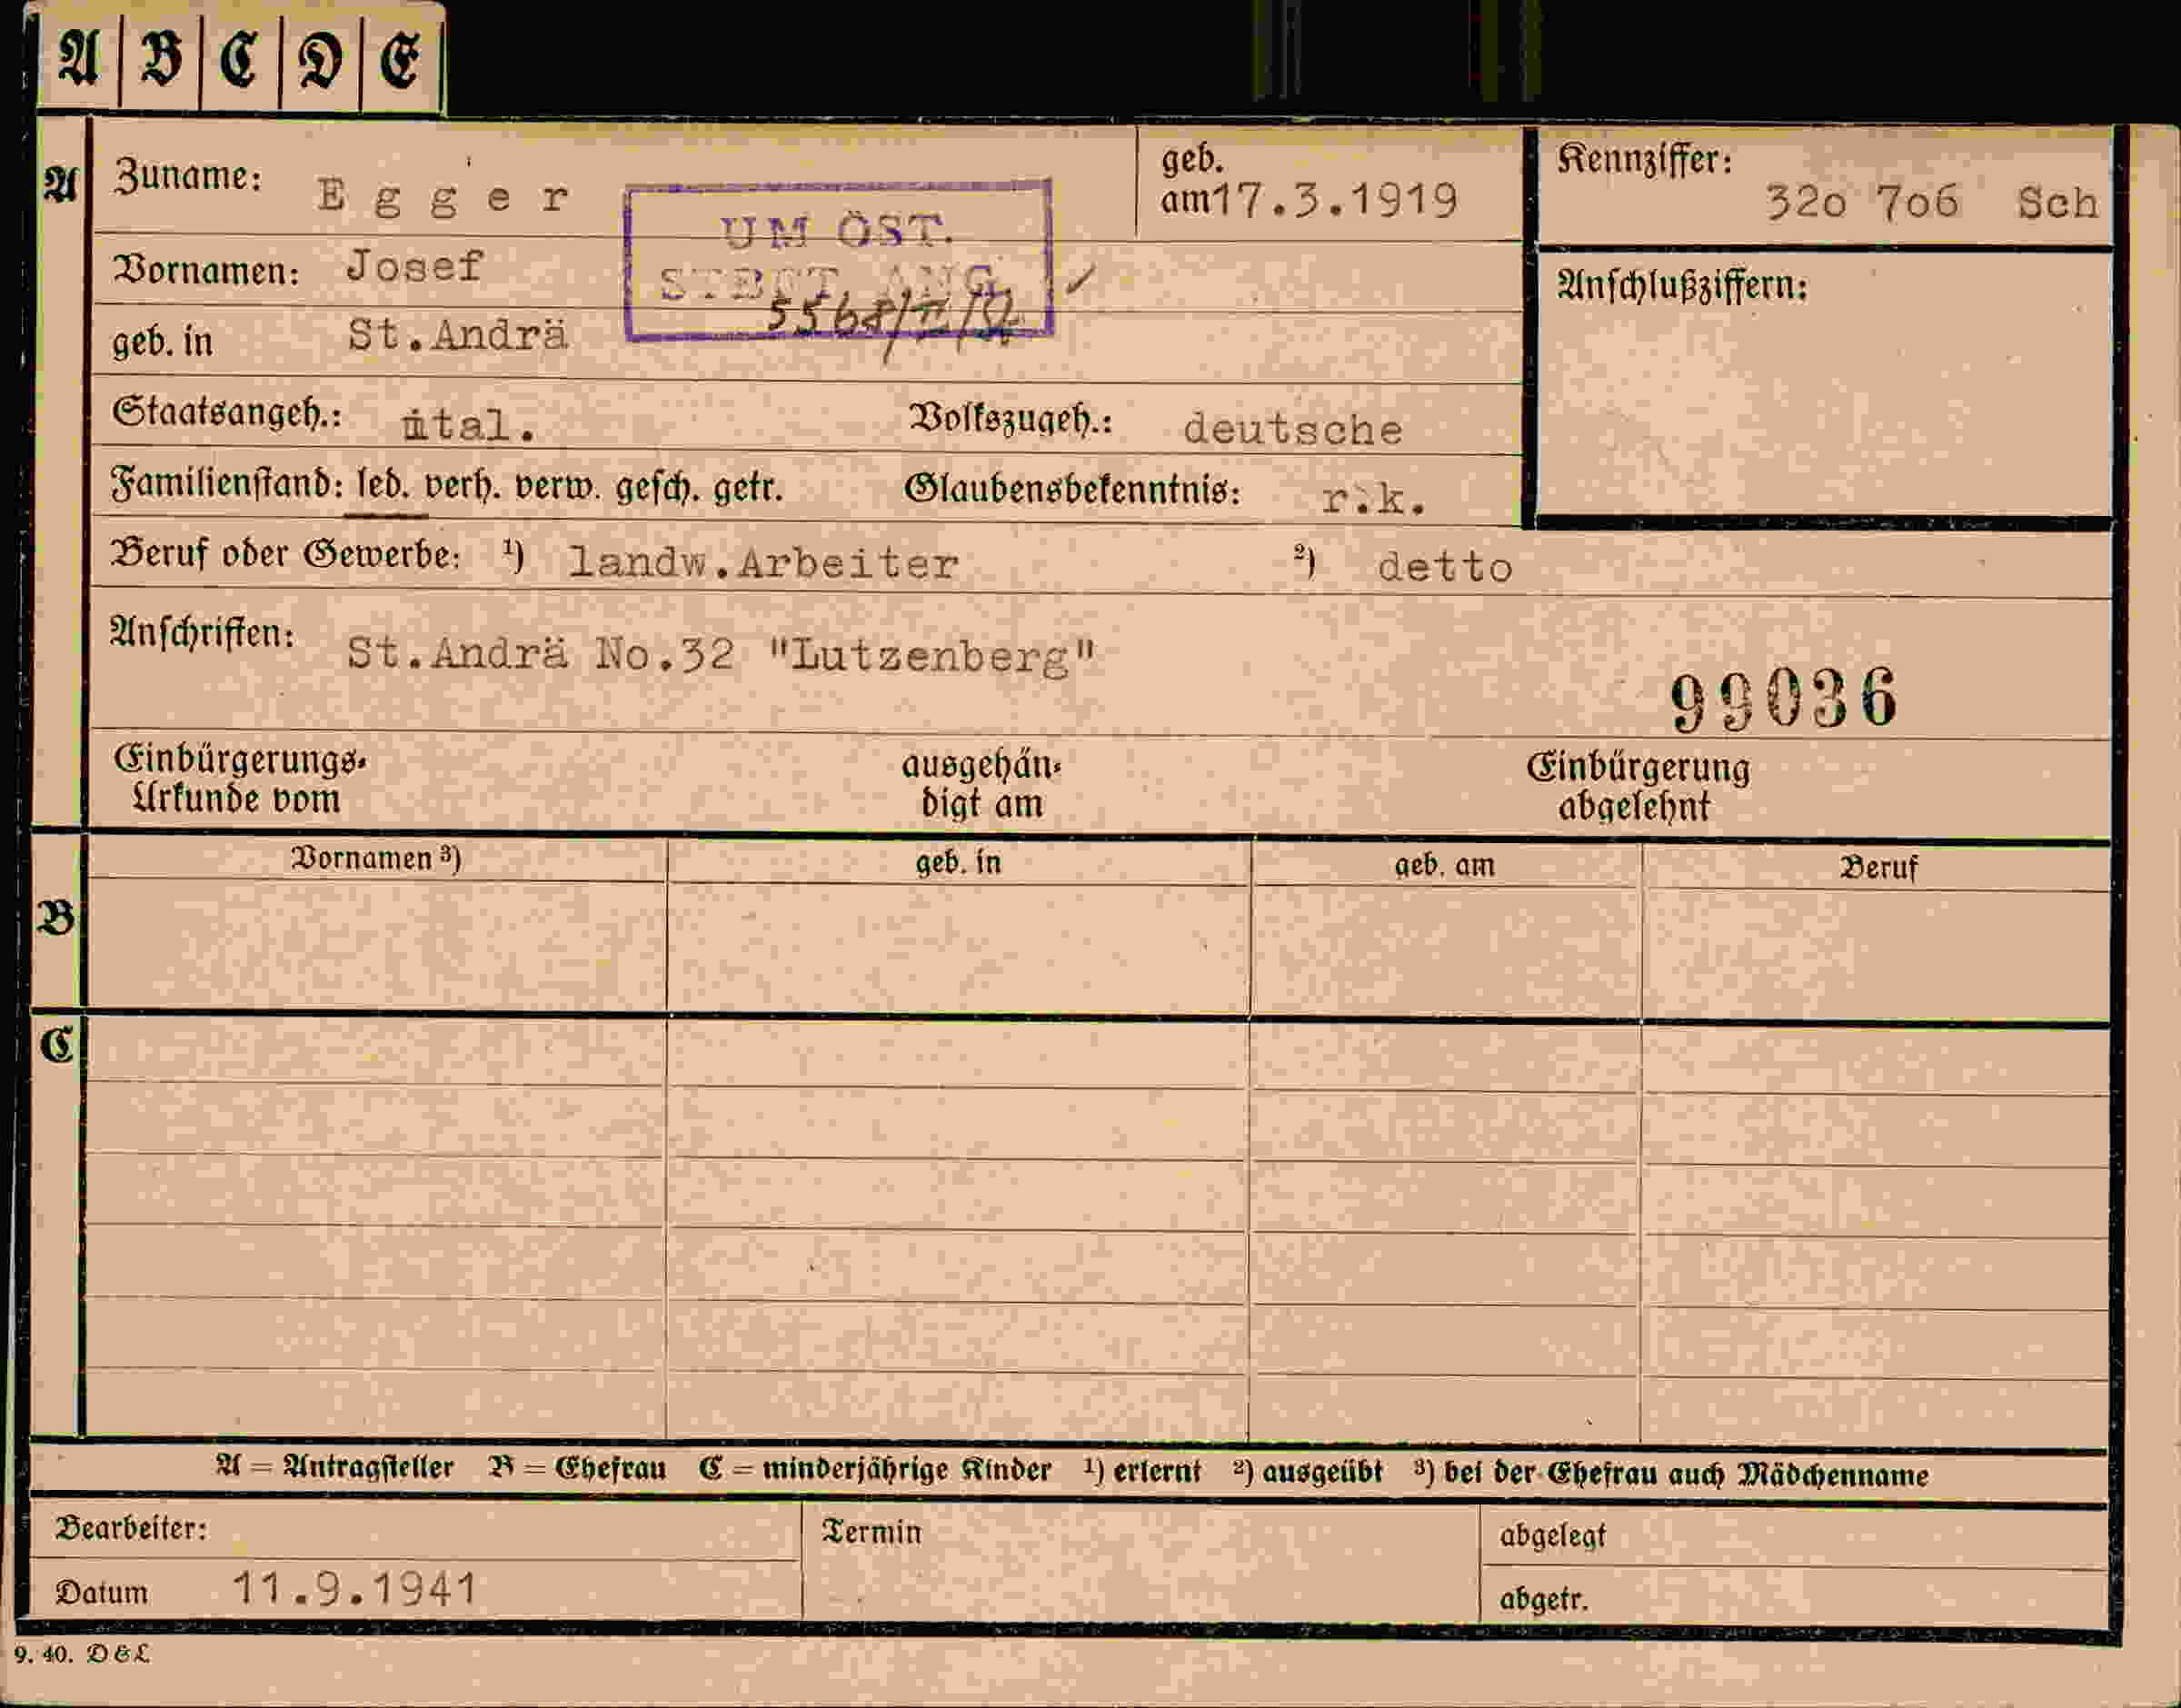 A B C D E
A Zuname: Egger geb. am 17.3.1919 Kennziffer: 320 706 Sch
UM ÖST.
STBGT. ANG.
Vornamen: Josef Anschlußziffern:
geb. in St.Andrä
Staatsangeh.: ital. Volkszugeh.: deutsche
Familienstand: led. verh. verw. gesch. getr. Glaubensbekenntnis: r.k.
Beruf oder Gewerbe: ¹) landw.Arbeiter ²) detto
Anschriften: St.Andrä No.32 "Lutzenberg"
99036
Einbürgerungs-Urkunde vom ausgehändigt am Einbürgerung abgelehnt
B Vornamen ³) geb. in geb. am Beruf
C
A = Antragsteller B = Ehefrau C = minderjährige Kinder ¹) erlernt ²) ausgeübt ³) bei der Ehefrau auch Mädchenname
Bearbeiter: Termin abgelegt
Datum 11.9.1941 abgetr.
9. 40. D & L